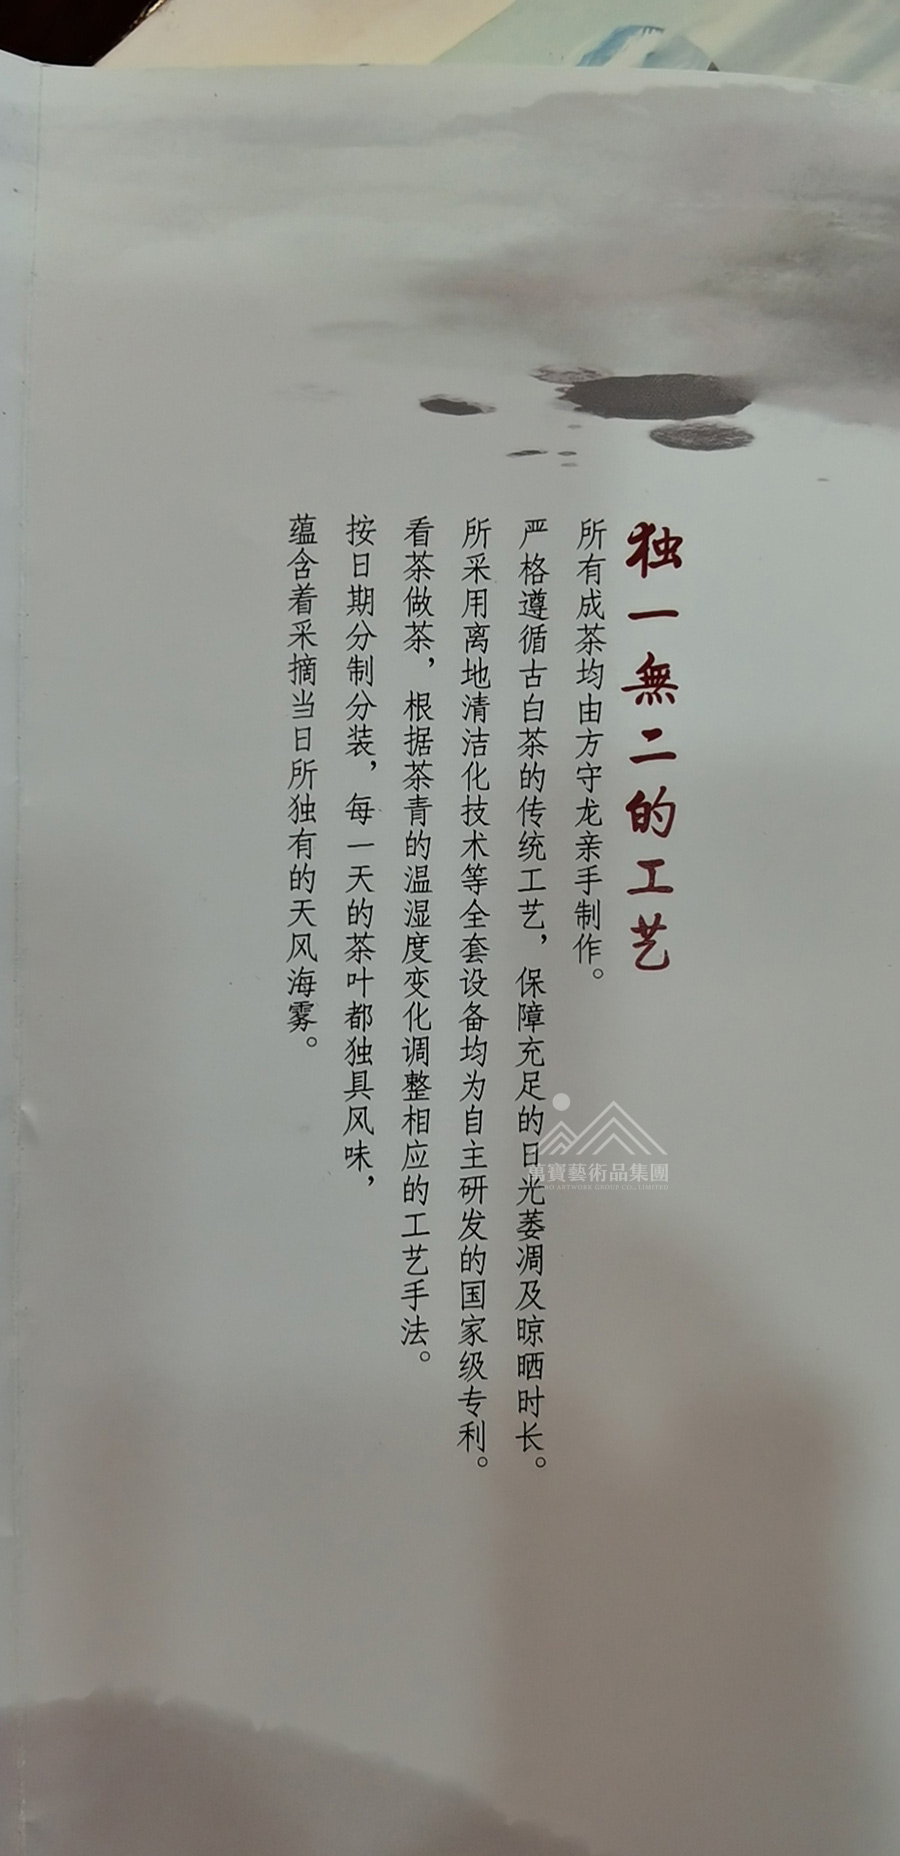 独一無二的工艺
所有成茶均由方守龙亲手制作。
严格遵循古白茶的传统工艺，保障充足的日光萎凋及晾晒时长。
所采用离地清洁化技术等全套设备均为自主研发的国家级专利。
看茶做茶，根据茶青的温湿度变化调整相应的工艺手法。
按日期分制分装，每一天的茶叶都独具风味，
蕴含着采摘当日所独有的天风海雾。
萬寶藝術品集團